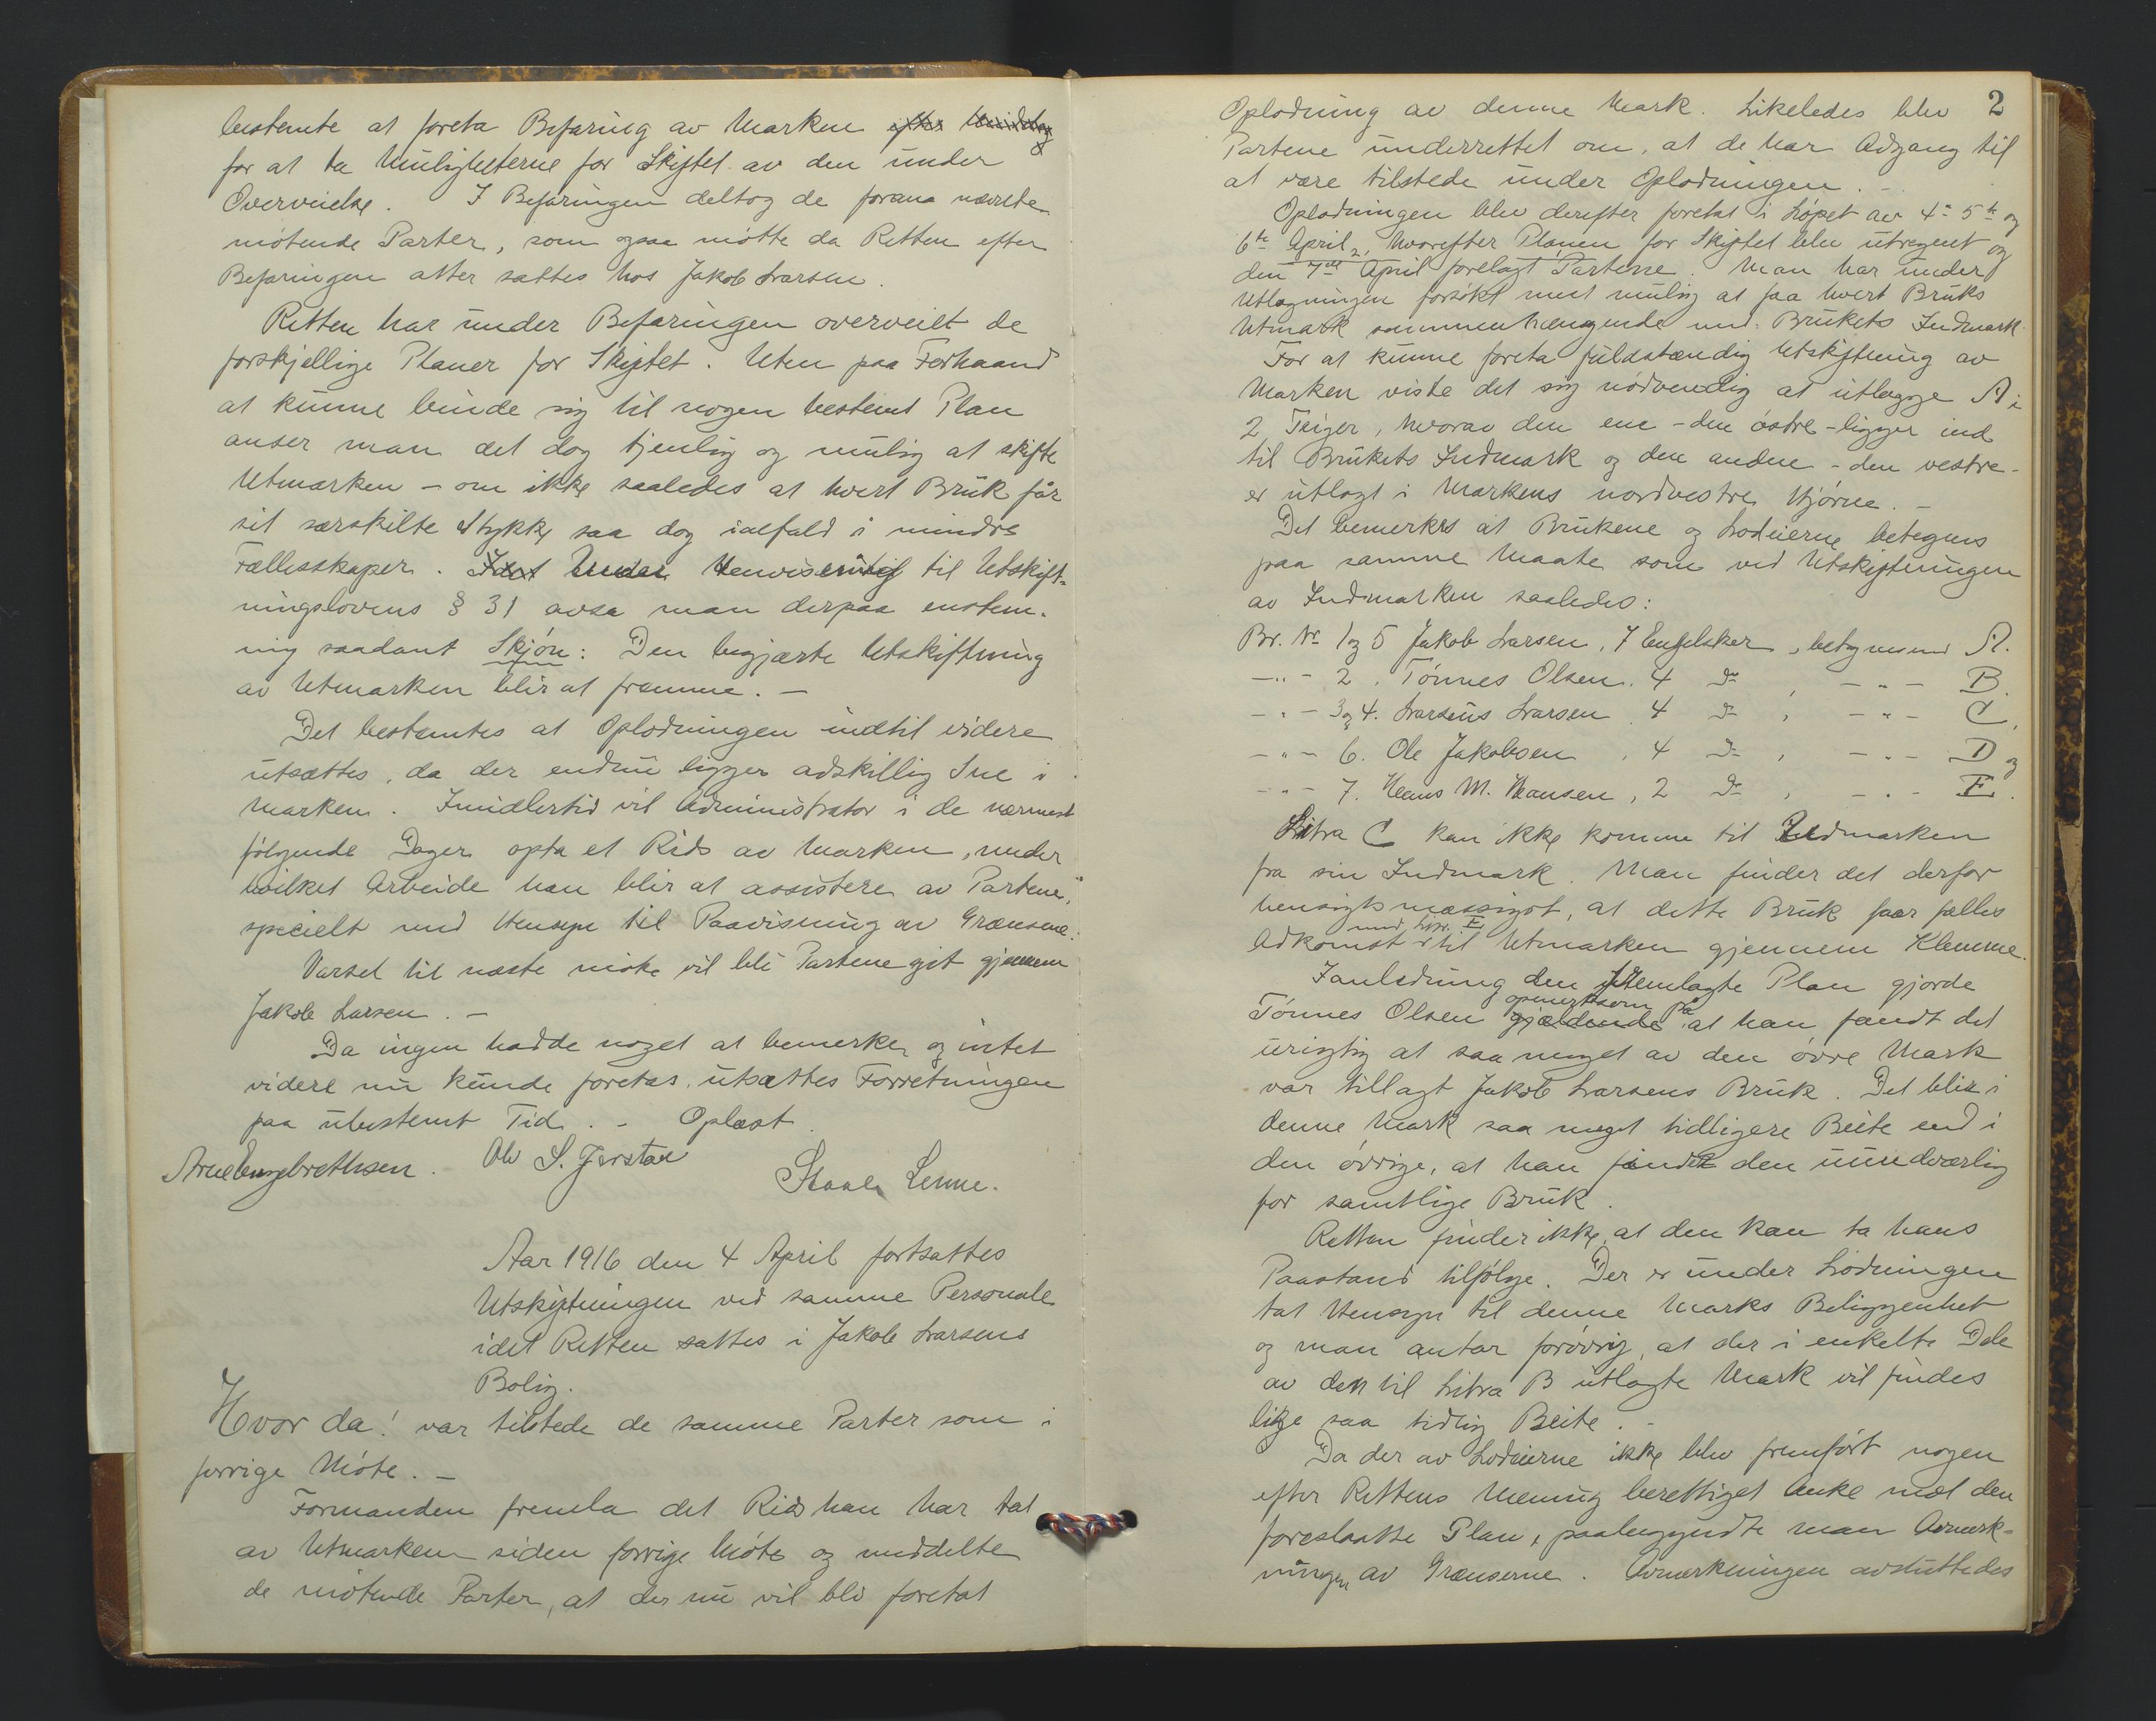 bestemte at foreta Befaring av Marken efter Middag
for at ta Mulighetene for Skiftet av den under
Overveielse. I Befaringen deltog de forana nævnte
møtende Parter, som ogsaa møtte da Retten efter
Befaringen atter sattes hos Jakob Larsen.
Retten har under Befaringen overveiet de
forskjellige Planer for Skiftet. Uten paa Forhaand
at kunne binde sig til nogen bestemt Plan
anser man det dog tjenlig og mulig at skifte
Utmarken - om ikke saaledes at hvert Bruk får
sit særskilte Stykke saa dog ialfald i mindre
Fællesskaper. Idet Under Henvisning til Utskift-
ningslovens § 31 avsa man derpaa enstem-
mig saadant Skjøn: Den begjærte Utskiftning
av Utmarken blir at fremme. -
Det bestemtes at Oplodningen indtil videre
utsættes, da der endnu ligger adskillig Sne i
Marken. Imidlertid vil Administrator i de nærmest
følgende Dager opta et Rids av Marken, under
hvilket Arbeide han blir at assistere av Partene,
specielt med Hensyn til Paavisning av Grænsene.
Varsel til næste møte vil bli Partene git gjennem
Jakob Larsen. -
Da ingen hadde noget at bemerke og intet
videre nu kunde foretas, utsattes Forretningen
paa ubestemt Tid. - Oplæst.
Arne Engebrethsen. Ole S. Jerstad
Staale Lenne.
Aar 1916 den 4 April fortsattes
Utskiftningen ved samme Personale
idet Retten sattes i Jakob Larsens
Bolig.
Hvor da! var tilstede de samme Parter som i
forrige Møte. -
Formanden fremla det Rids han har tat
av Utmarken siden forrige Møte og meddelte
de møtende Parter, at der nu vil bli foretat
2
Oplodning av denne Mark. Likeledes blev
Partene underrettet om, at de har Adgang til
at være tilstede under Oplodningen. -
Oplodningen blev derefter foretat i Løpet av 4de 5te og
6te April, hvorefter Planen for Skiftet blev utregnet og
den 7de April forelagt Partene. Man har under
Utlægningen forsøkt mest mulig at faa hvert Bruks
Utmark sammenhængende med Brukets Indmark.
For at kunne foreta fuldstændig Utskiftning av
Marken viste det sig nødvendig at utlægge A i
2 Teiger, hvorav den ene - den østre - ligger ind
til Brukets Indmark og den anden - den vestre -
er utlagt i Markens nordvestre Hjørne. -
Det bemerkes at Brukene og Lodeierne betegnes
paa samme Maate som ved Utskiftningen
av Indmarken saaledes:
Br. Nr. 1 og 5 Jakob Larsen, 7 Engelsker, betegnes med A.
-"- 2. Tønnes Olsen. 4 do , -"- B.
-"- 3 og 4. Larsens Larsen. 4 do , -"- C,
-"- 6. Ole Jakobsen, 4 do , -"- D og
-"- 7. Hans M. Hansen, 2 do , -"- E.
Litra C kan ikke komme til Utmarken
fra sin Indmark. Man finder det derfor
hensigtsmæssigst, at dette Bruk faar fælles
med Litr. E
Adkomst til Utmarken gjennem Klemme.
I anledning den fremlagte Plan gjorde
opmerksom på
Tønnes Olsen gjældende at han fandt det
urigtig at saa meget av den øvre Mark
var tillagt Jakob Larsens Bruk. Det blir i
denne Mark saa meget tidligere Beite end i
den øvrige, at han fandt den uundværlig
for samtlige Bruk.
Retten finder ikke, at den kan ta hans
Paastand tilfølge. Der er under Lodningen
tat Hensyn til denne Marks Beliggenhet
og man antar forøvrig, at der i enkelte Dele
av den til Litra B utlagte Mark vil findes
like saa tidlig Beite. -
Da der av Lodeierne ikke blev fremført nogen
efter Rettens Mening berettiget Anke mot den
foreslaatte Plan, paabegyndte man Avmerk-
ningen av Grænserne. Avmerkningen avsluttedes